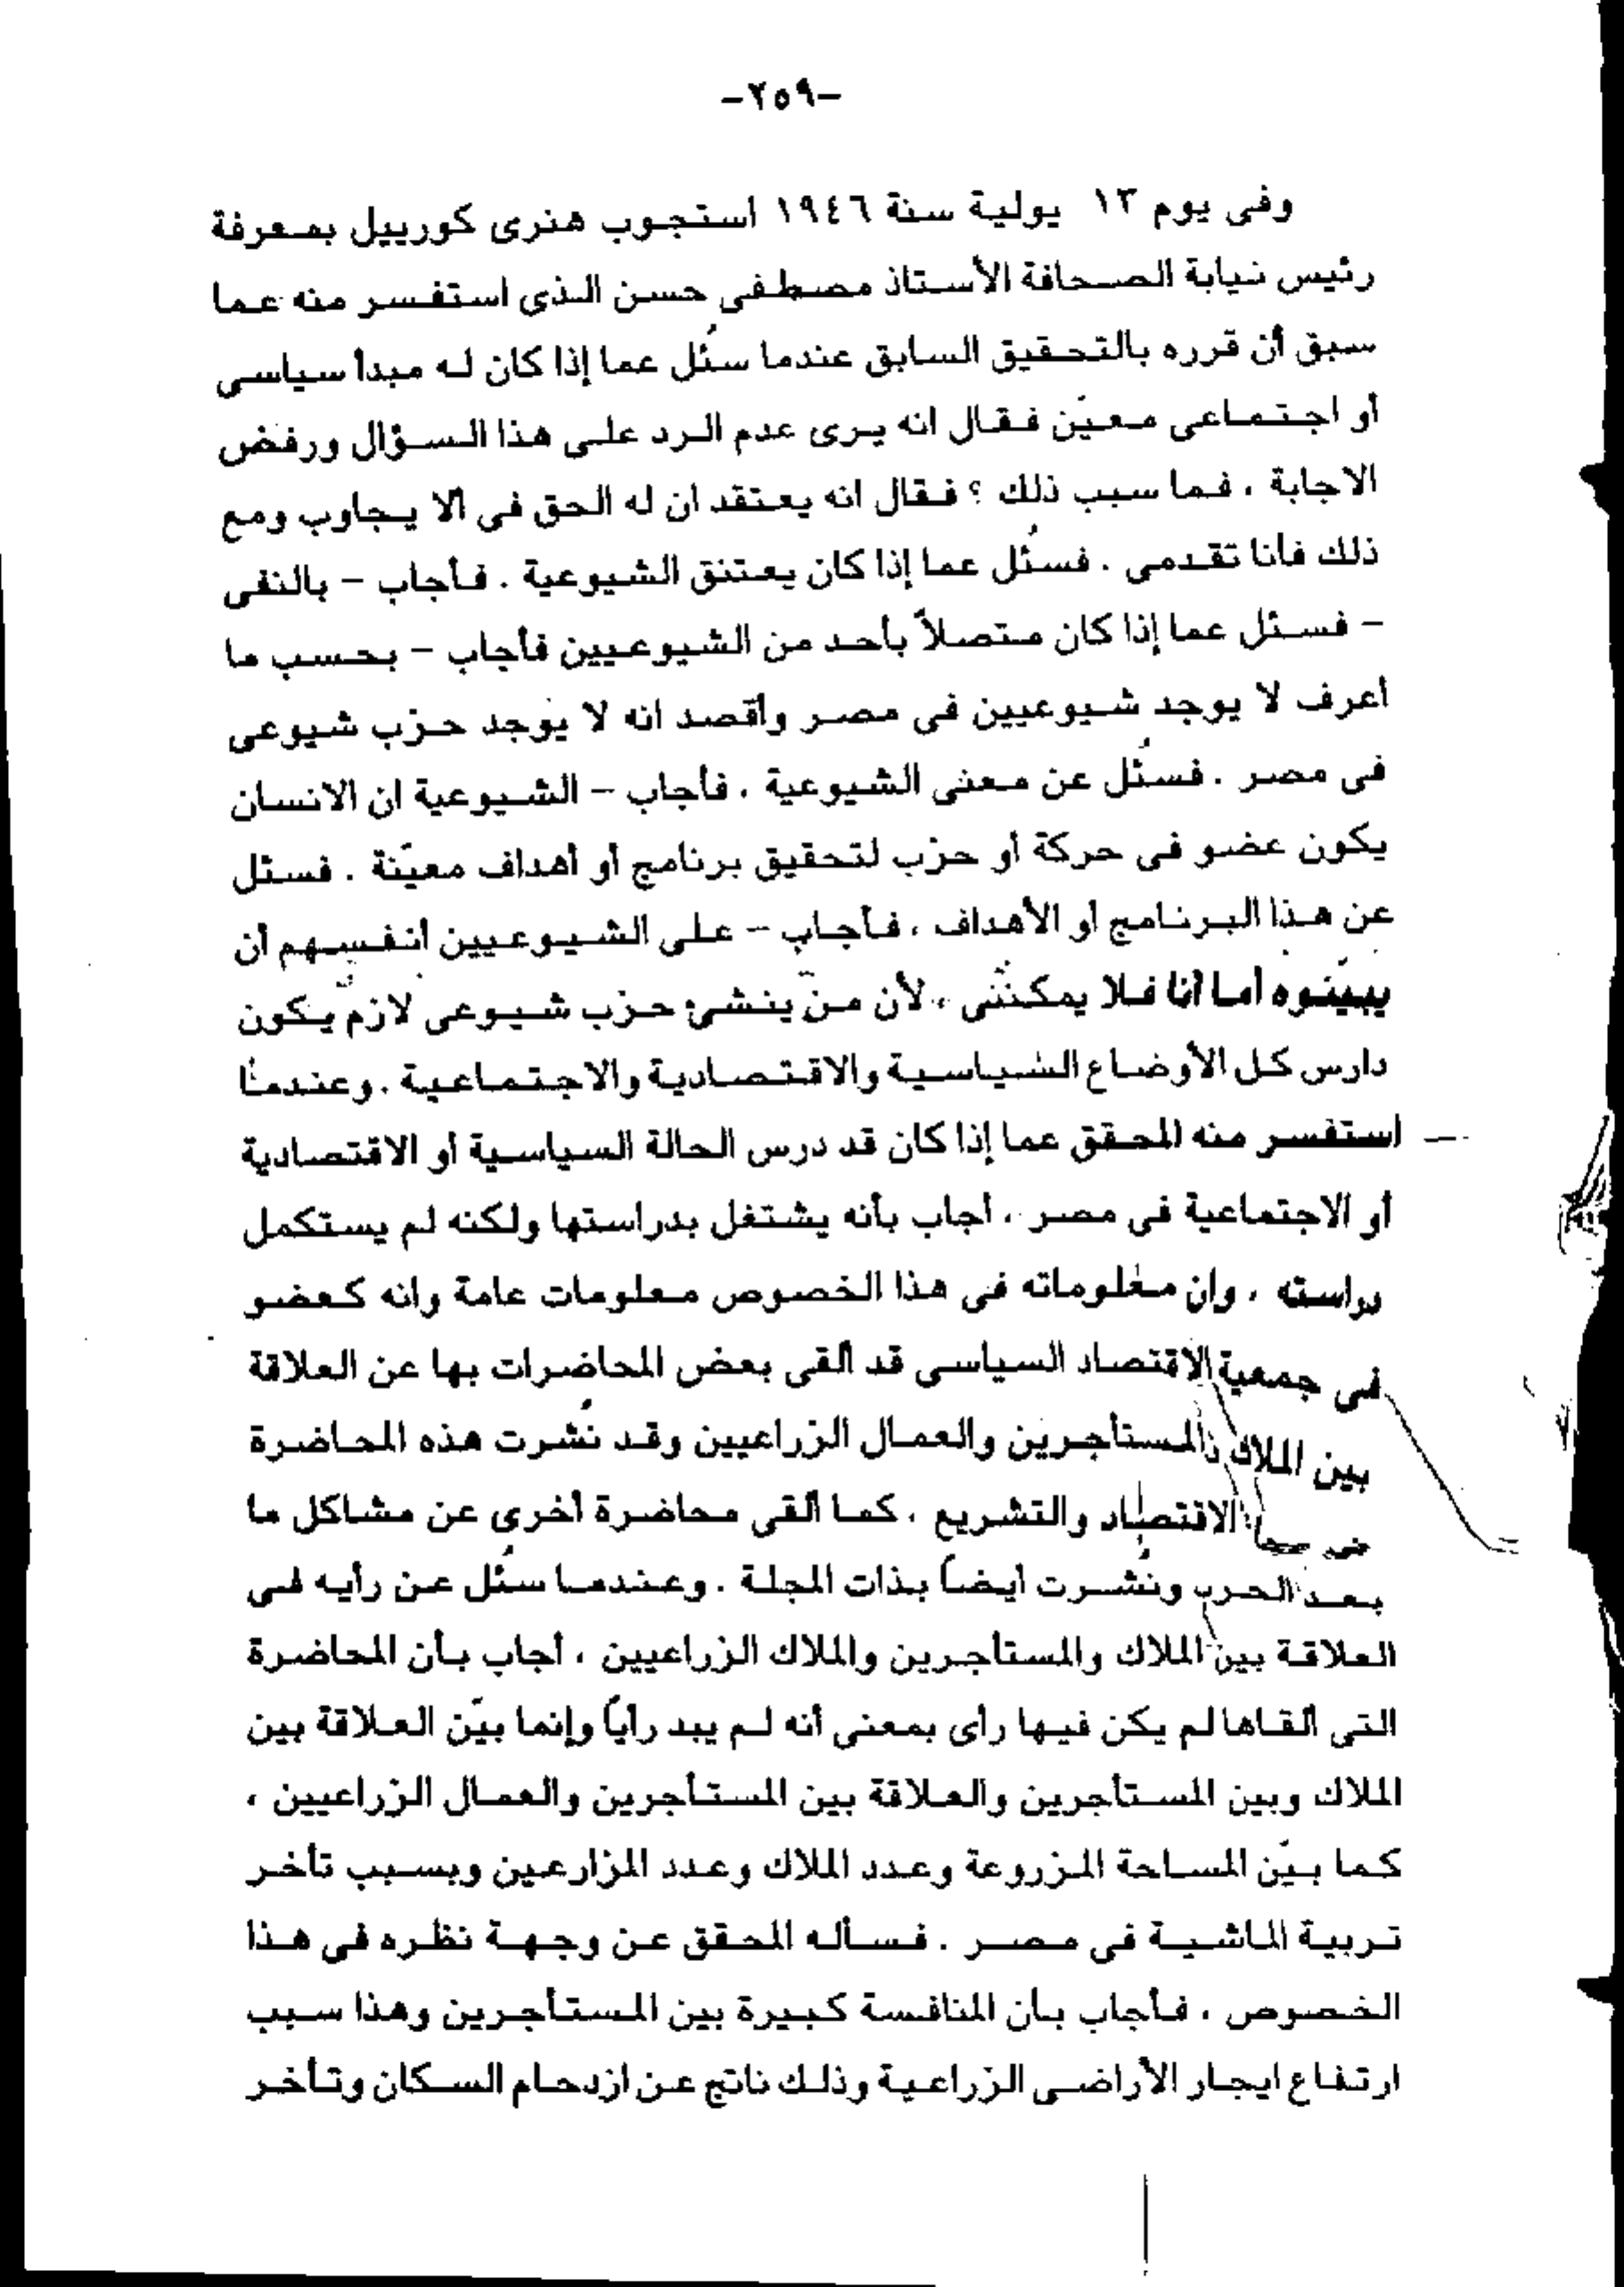 -٢٥٩-
وفى يوم ١٣ يولية سنة ١٩٤٦ استجوب هنرى كورييل بمعرفة
رئيس نيابة الصحافة الأستاذ مصطفى حسن الذى استفسر منه عما
سبق أن قرره بالتحقيق السابق عندما سُئل عما إذا كان له مبدأ سياسى
أو اجتماعى معيّن فقال انه يرى عدم الرد على هذا السؤال ورفض
الاجابة ، فما سبب ذلك ؟ فقال انه يعتقد ان له الحق فى ألا يجاوب ومع
ذلك فأنا تقدمى . فسُئل عما إذا كان يعتنق الشيوعية . فأجاب - بالنفى
- فسئل عما إذا كان متصلاً بأحد من الشيوعيين فأجاب - بحسب ما
أعرف لا يوجد شيوعيين فى مصر وأقصد انه لا يوجد حزب شيوعى
فى مصر . فسُئل عن معنى الشيوعية ، فأجاب - الشيوعية ان الانسان
يكون عضو فى حركة أو حزب لتحقيق برنامج أو أهداف معيّنة . فسئل
عن هذا البرنامج أو الأهداف ، فأجاب - على الشيوعيين أنفسهم أن
يبيّنوه أما أنا فلا يمكننى ، لأن من ينشئ حزب شيوعى لازم يكون
دارس كل الأوضاع السياسية والاقتصادية والاجتماعية . وعندما
استفسر منه المحقق عما إذا كان قد درس الحالة السياسية أو الاقتصادية
أو الاجتماعية فى مصر ، أجاب بأنه يشتغل بدراستها ولكنه لم يستكمل
دراسته ، وان معلوماته فى هذا الخصوص معلومات عامة وانه كعضو
فى جمعية الاقتصاد السياسى قد ألقى بعض المحاضرات بها عن العلاقة
بين الملاك والمستأجرين والعمال الزراعيين وقد نُشرت هذه المحاضرة
الاقتصاد والتشريع ، كما ألقى محاضرة أخرى عن مشاكل ما
بعد الحرب ونُشرت أيضاً بذات المجلة . وعندما سُئل عن رأيه فى
العلاقة بين الملاك والمستأجرين والملاك الزراعيين ، أجاب بأن المحاضرة
التى ألقاها لم يكن فيها رأى بمعنى أنه لم يبد رأياً وإنما بيّن العلاقة بين
الملاك وبين المستأجرين والعلاقة بين المستأجرين والعمال الزراعيين ،
كما بيّن المساحة المزروعة وعدد الملاك وعدد المزارعين وبسبب تأخر
تربية الماشية فى مصر . فسأله المحقق عن وجهة نظره فى هذا
الخصوص ، فأجاب بأن المنافسة كبيرة بين المستأجرين وهذا سبب
ارتفاع ايجار الأراضى الزراعية وذلك ناتج عن ازدحام السكان وتأخر